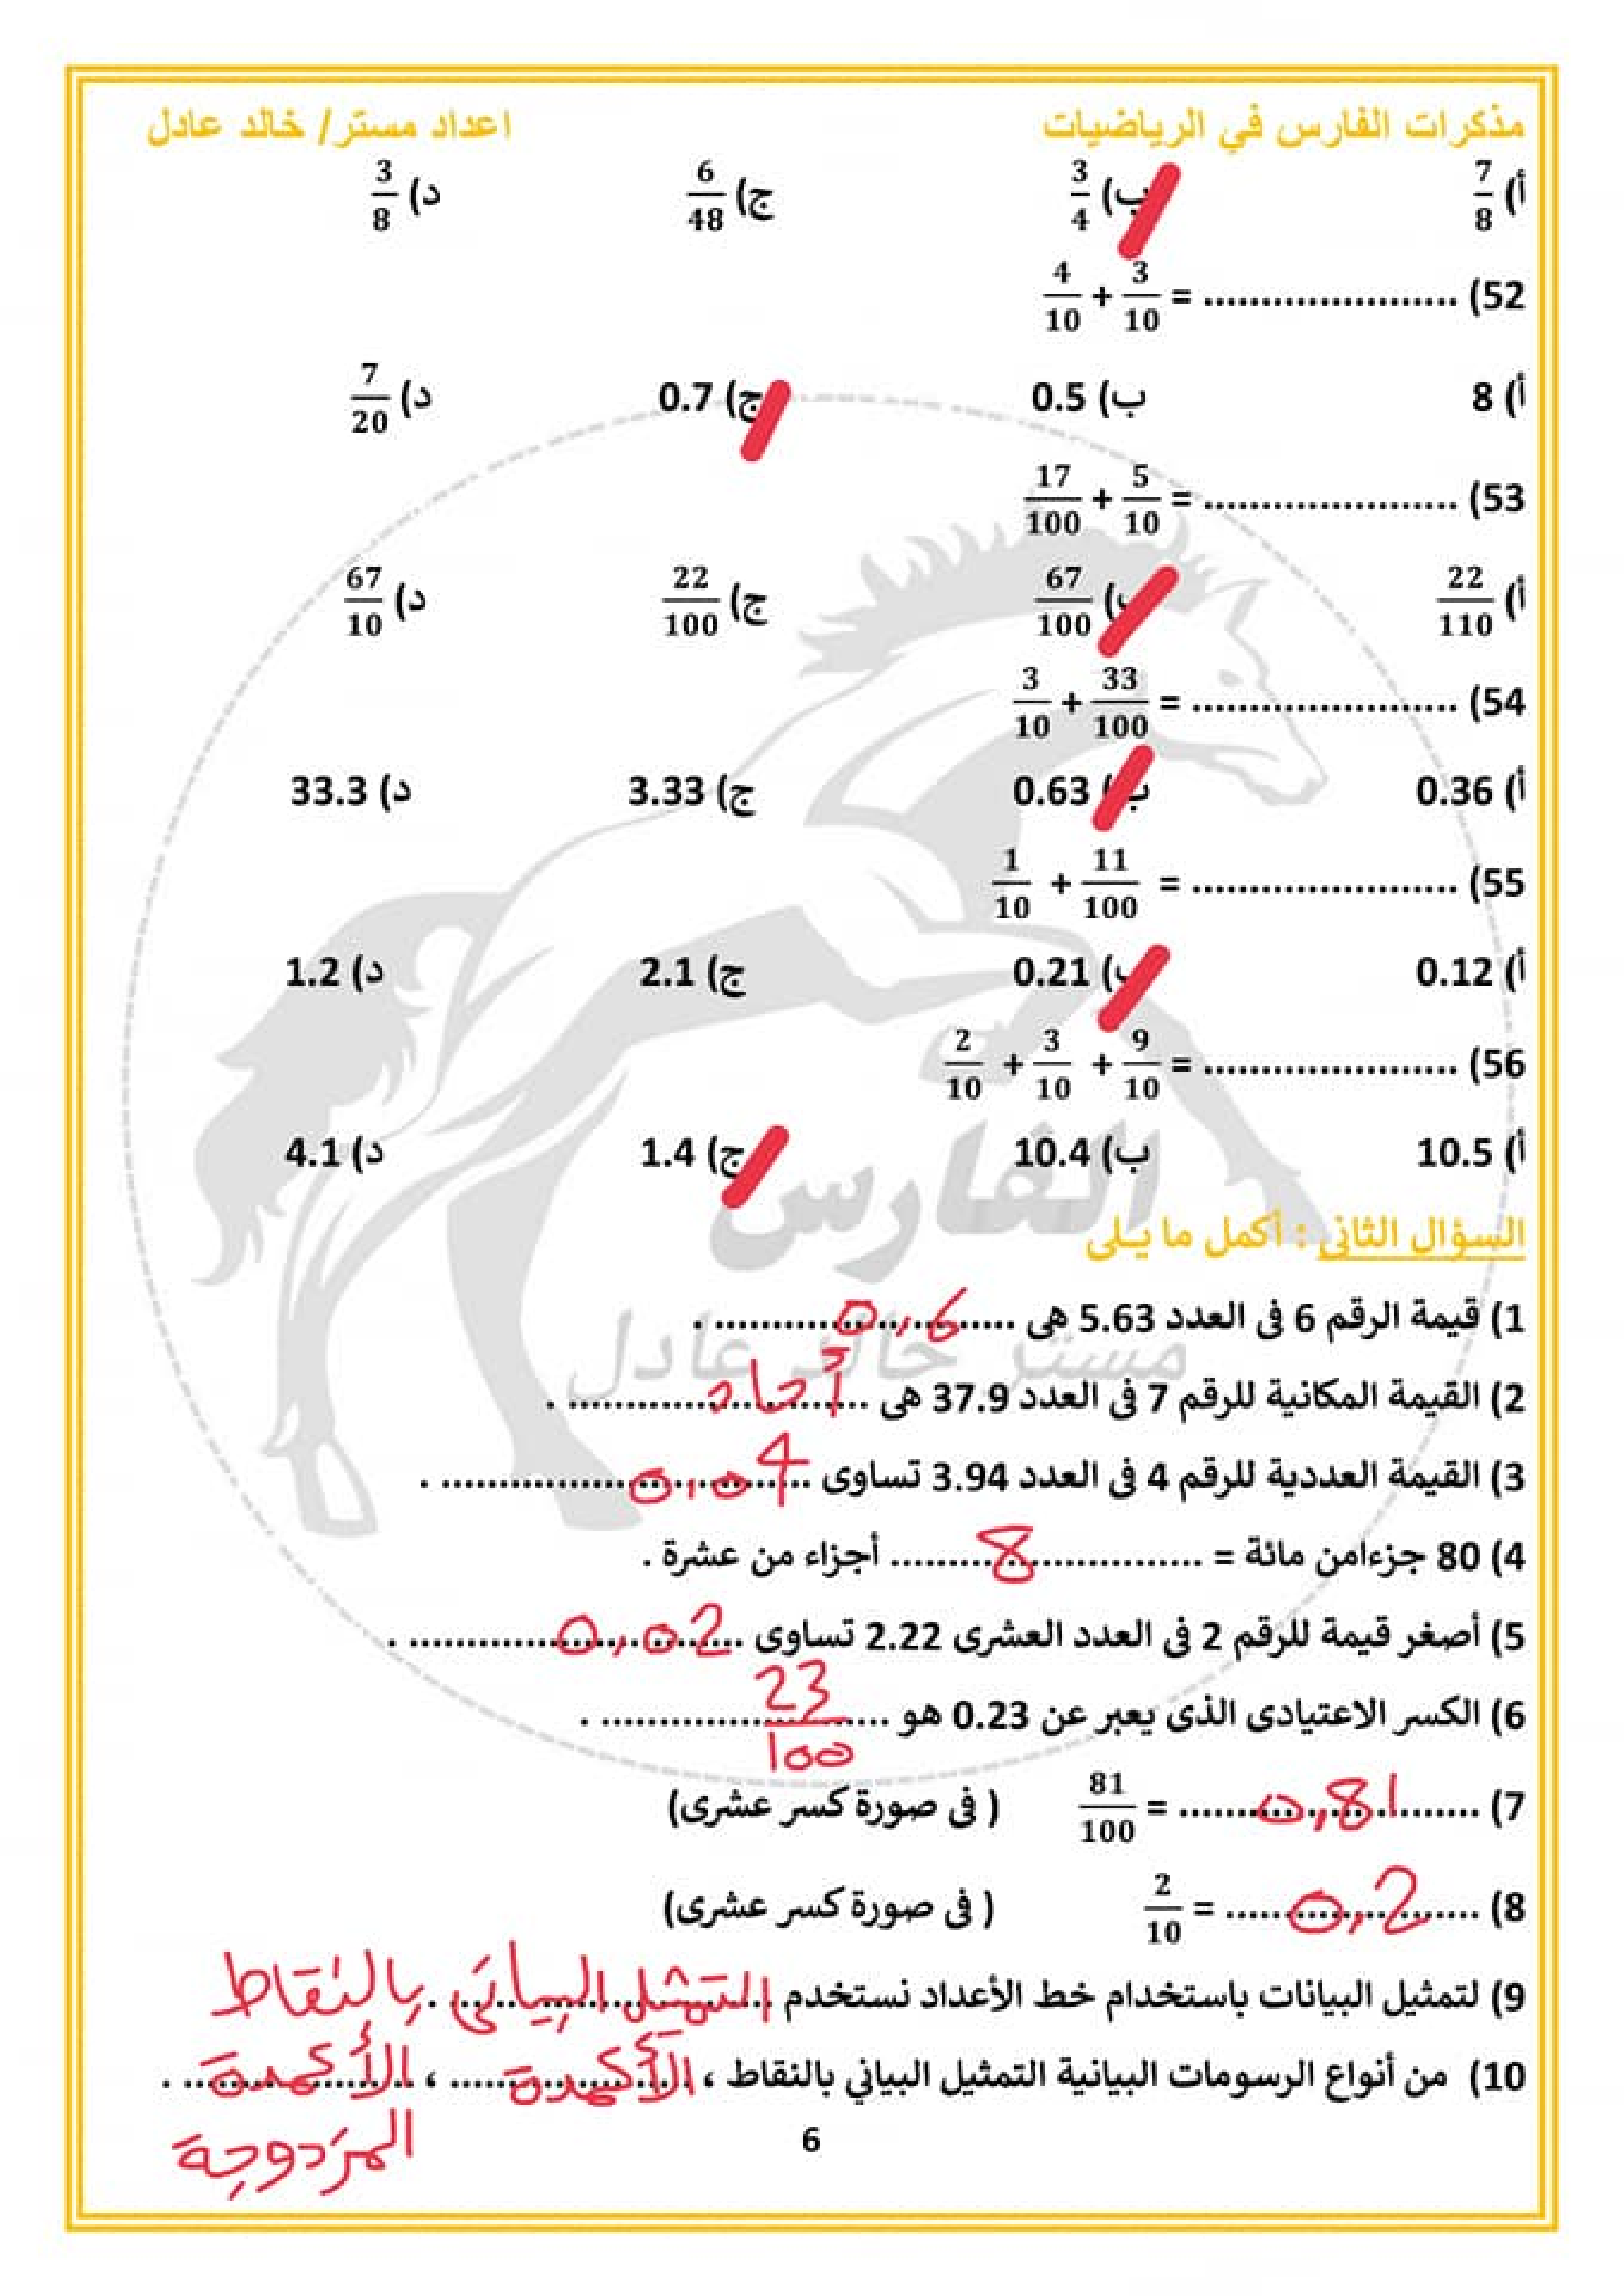 مذكرات الفارس في الرياضيات اعداد مستر/ خالد عادل
أ) 7/8 ب) 3/4 ج) 6/48 د) 3/8
52) ...................... = 3/10 + 4/10
أ) 8 ب) 0.5 ج) 0.7 د) 7/20
53) ...................... = 5/10 + 17/100
أ) 22/110 ب) 67/100 ج) 22/100 د) 67/10
54) ....................... = 33/100 + 3/10
أ) 0.36 ب) 0.63 ج) 3.33 د) 33.3
55) ....................... = 11/100 + 1/10
أ) 0.12 ب) 0.21 ج) 2.1 د) 1.2
56) ...................... = 9/10 + 3/10 + 2/10
أ) 10.5 ب) 10.4 ج) 1.4 د) 4.1
الفارس
السؤال الثانى : أكمل ما يلى
1) قيمة الرقم 6 فى العدد 5.63 هى 0,6 .
مستر خالد عادل
2) القيمة المكانية للرقم 7 فى العدد 37.9 هى أحاد .
3) القيمة العددية للرقم 4 فى العدد 3.94 تساوى 0,04 .
4) 80 جزءامن مائة = 8 أجزاء من عشرة .
5) أصغر قيمة للرقم 2 فى العدد العشرى 2.22 تساوى 0,02 .
6) الكسر الاعتيادى الذى يعبر عن 0.23 هو 23/100 .
7) 0,81 = 81/100 ( فى صورة كسر عشرى)
8) 0,2 = 2/10 ( فى صورة كسر عشرى)
9) لتمثيل البيانات باستخدام خط الأعداد نستخدم التمثيل البيانى بالنقاط .
10) من أنواع الرسومات البيانية التمثيل البياني بالنقاط ، الأكمدة ، الأكمدة .
المزدوجة
6